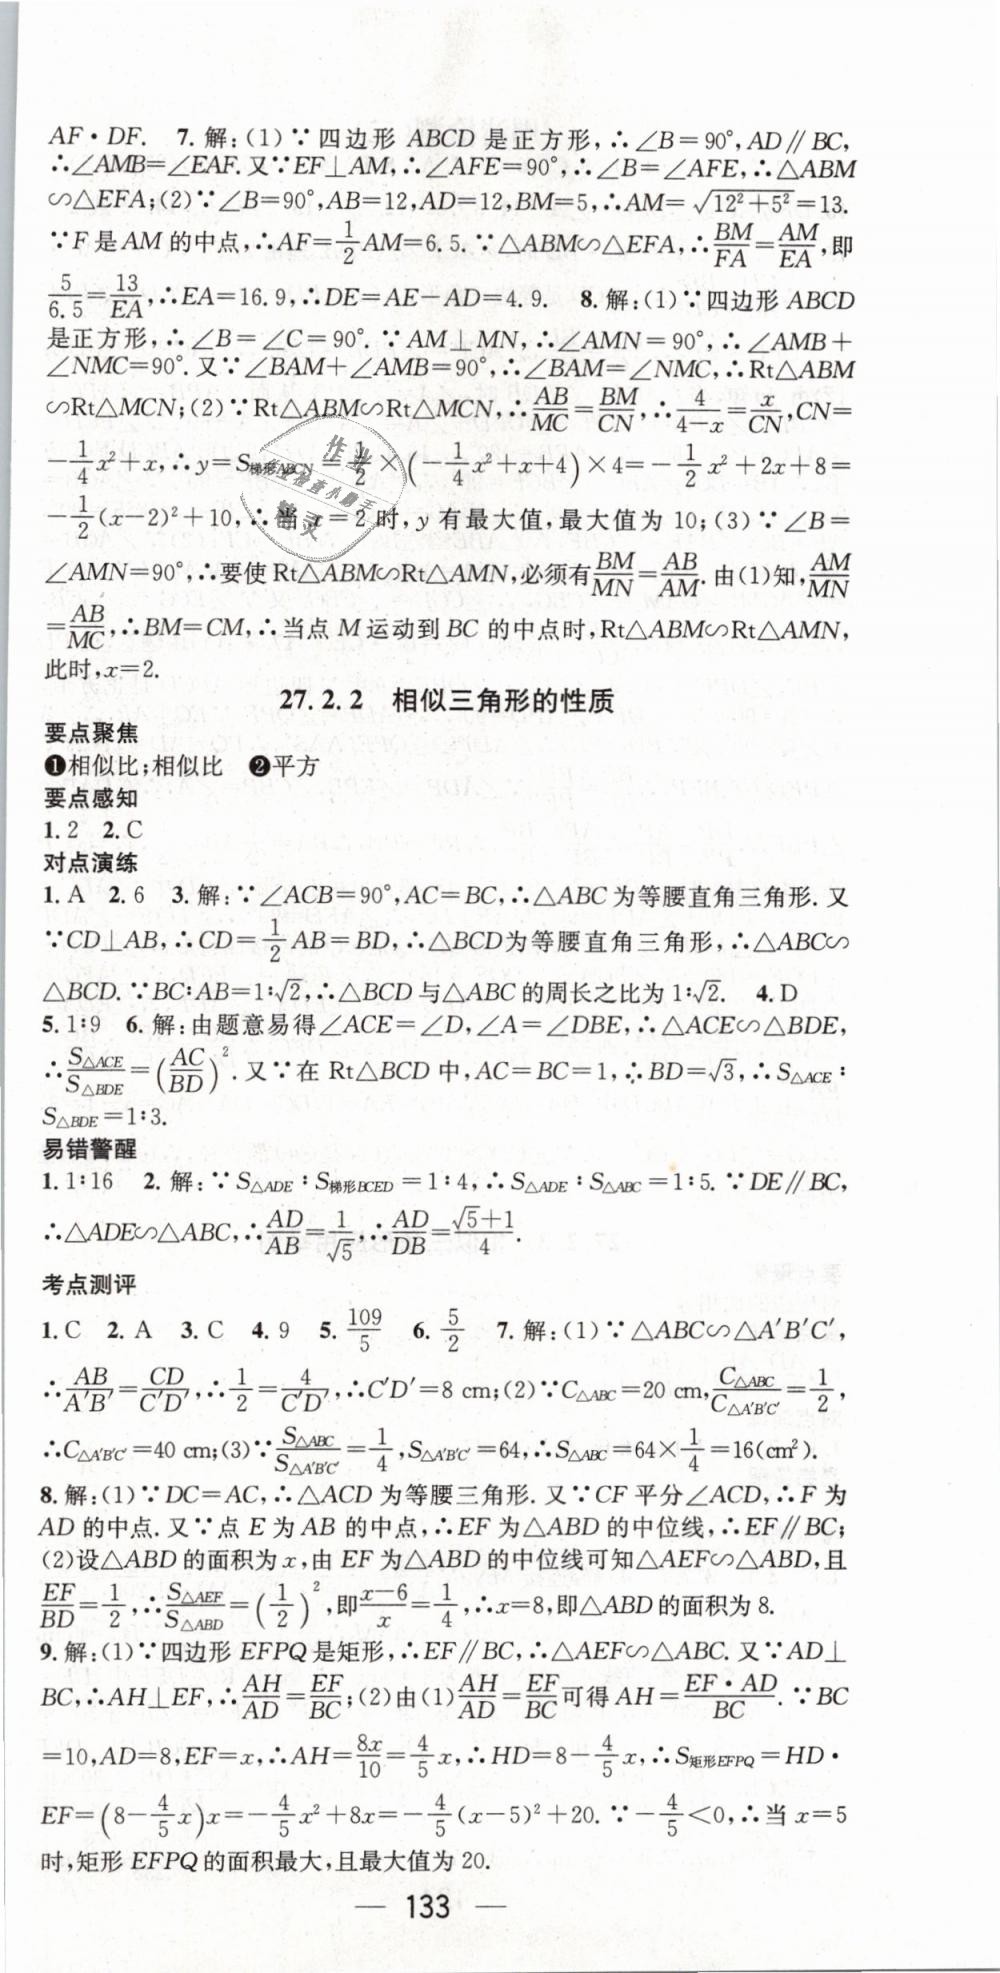 AF·DF. 7.解:(1)∵四边形 ABCD 是正方形,∴∠B=90°,AD∥BC,
∴∠AMB=∠EAF.又∵EF⊥AM,∴∠AFE=90°,∴∠B=∠AFE,∴△ABM
∽△EFA;(2)∵∠B=90°,AB=12,AD=12,BM=5,∴AM=√(12²+5²)=13.
∵F是AM的中点,∴AF=1/2 AM=6.5.∵△ABM∽△EFA,∴BM/FA=AM/EA,即
5/6.5=13/EA,∴EA=16.9,∴DE=AE-AD=4.9. 8.解:(1)∵四边形 ABCD
是正方形,∴∠B=∠C=90°.∵AM⊥MN,∴∠AMN=90°,∴∠AMB+
∠NMC=90°.又∵∠BAM+∠AMB=90°,∴∠BAM=∠NMC,∴Rt△ABM
∽Rt△MCN;(2)∵Rt△ABM∽Rt△MCN,∴AB/MC=BM/CN,∴4/(4-x)=x/CN,CN=
-1/4 x²+x,∴y=S梯形ABCN=1/2×(-1/4 x²+x+4)×4=-1/2 x²+2x+8=
-1/2(x-2)²+10,∴当x=2时,y有最大值,最大值为10;(3)∵∠B=
∠AMN=90°,∴要使Rt△ABM∽Rt△AMN,必须有BM/MN=AB/AM.由(1)知,AM/MN
=AB/MC,∴BM=CM,∴当点M运动到BC的中点时,Rt△ABM∽Rt△AMN,
此时,x=2.
27.2.2 相似三角形的性质
要点聚焦
❶相似比;相似比 ❷平方
要点感知
1.2 2.C
对点演练
1.A 2.6 3.解:∵∠ACB=90°,AC=BC,∴△ABC为等腰直角三角形.又
∵CD⊥AB,∴CD=1/2 AB=BD,∴△BCD为等腰直角三角形,∴△ABC∽
△BCD.∵BC∶AB=1∶√2,∴△BCD与△ABC的周长之比为1∶√2. 4.D
5.1∶9 6.解:由题意易得∠ACE=∠D,∠A=∠DBE,∴△ACE∽△BDE,
∴S△ACE/S△BDE=(AC/BD)².又∵在Rt△BCD中,AC=BC=1,∴BD=√3,∴S△ACE∶
S△BDE=1∶3.
易错警醒
1.1∶16 2.解:∵S△ADE∶S梯形BCED=1∶4,∴S△ADE∶S△ABC=1∶5.∵DE∥BC,
∴△ADE∽△ABC,∴AD/AB=1/√5,∴AD/DB=(√5+1)/4.
考点测评
1.C 2.A 3.C 4.9 5.109/5 6.5/2 7.解:(1)∵△ABC∽△A′B′C′,
∴AB/A′B′=CD/C′D′,∴1/2=4/C′D′,∴C′D′=8 cm;(2)∵C△ABC=20 cm,C△ABC/C△A′B′C′=1/2,
∴C△A′B′C′=40 cm;(3)∵S△ABC/S△A′B′C′=1/4,S△A′B′C′=64,∴S△ABC=64×1/4=16(cm²).
8.解:(1)∵DC=AC,∴△ACD为等腰三角形.又∵CF平分∠ACD,∴F为
AD的中点.又∵点E为AB的中点,∴EF为△ABD的中位线,∴EF∥BC;
(2)设△ABD的面积为x,由EF为△ABD的中位线可知△AEF∽△ABD,且
EF/BD=1/2,∴S△AEF/S△ABD=(1/2)²,即(x-6)/x=1/4,∴x=8,即△ABD的面积为8.
9.解:(1)∵四边形EFPQ是矩形,∴EF∥BC,∴△AEF∽△ABC.又∵AD⊥
BC,∴AH⊥EF,∴AH/AD=EF/BC;(2)由(1)AH/AD=EF/BC可得AH=EF·AD/BC.∵BC
=10,AD=8,EF=x,∴AH=8x/10=4/5 x,∴HD=8-4/5 x,∴S矩形EFPQ=HD·
EF=(8-4/5 x)x=-4/5 x²+8x=-4/5(x-5)²+20.∵-4/5<0,∴当x=5
时,矩形EFPQ的面积最大,且最大值为20.
— 133 —